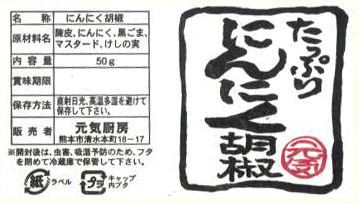 名称 にんにく胡椒
原材料名 陳皮、にんにく、黒ごま、
マスタード、けしの実
内容量 50g
賞味期限
保存方法 直射日光、高温多湿を避けて
保存して下さい。
販売者 元気厨房
熊本市清水本町18-17
※開封後は、虫害、吸湿予防のため、フタ
を閉めて冷蔵庫で保管して下さい。
紙 ラベル
プラ キャップ
内ブタ
たっぷり
にんにく
胡椒
元気